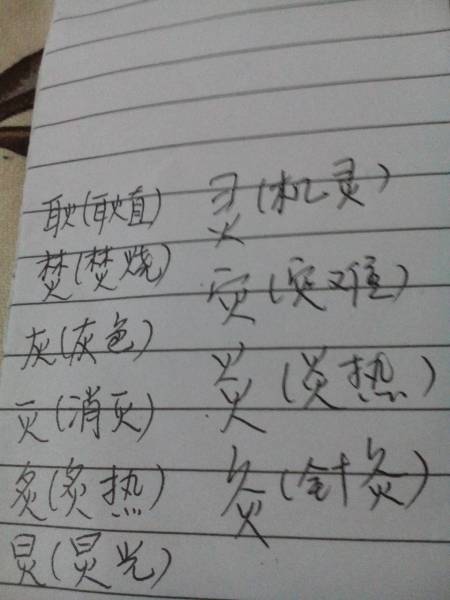 耿(耿直)
焚(焚烧)
灰(灰色)
灭(消灭)
炙(炙热)
炅(炅光)
灵(机灵)
灾(灾难)
炎(炎热)
灸(针灸)